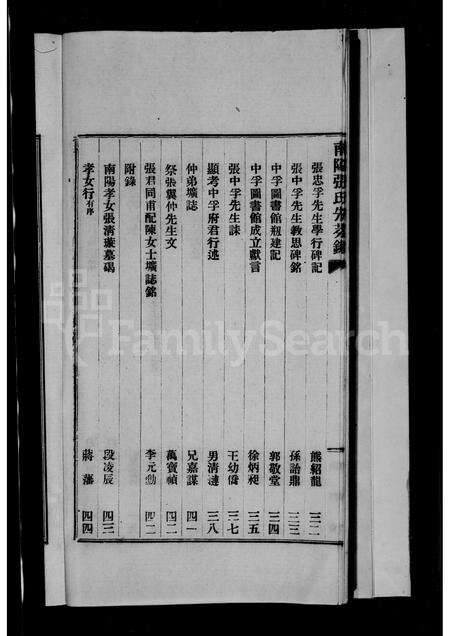 南陽張氏先芬錄
張忠孚先生學行碑記 熊紹龍
張中孚先生教思碑銘 孫詒鼎 三三
中孚圖書館剏建記 郭敬堂 三四
中孚圖書館成立獻言 徐炳昶 三五
張中孚先生誄 王幼僑 三七
顯考中孚府君行述 男清漣 三八
仲弟壙誌 兄嘉謀 四一
祭張翼仲先生文 萬寶楨 四二
張君同甫配陳女士壙誌銘 李元勳 四二
附錄
南陽孝女張清漪墓碣 段凌辰 四三
孝女行有序 蔣藩 四四
FamilySearch